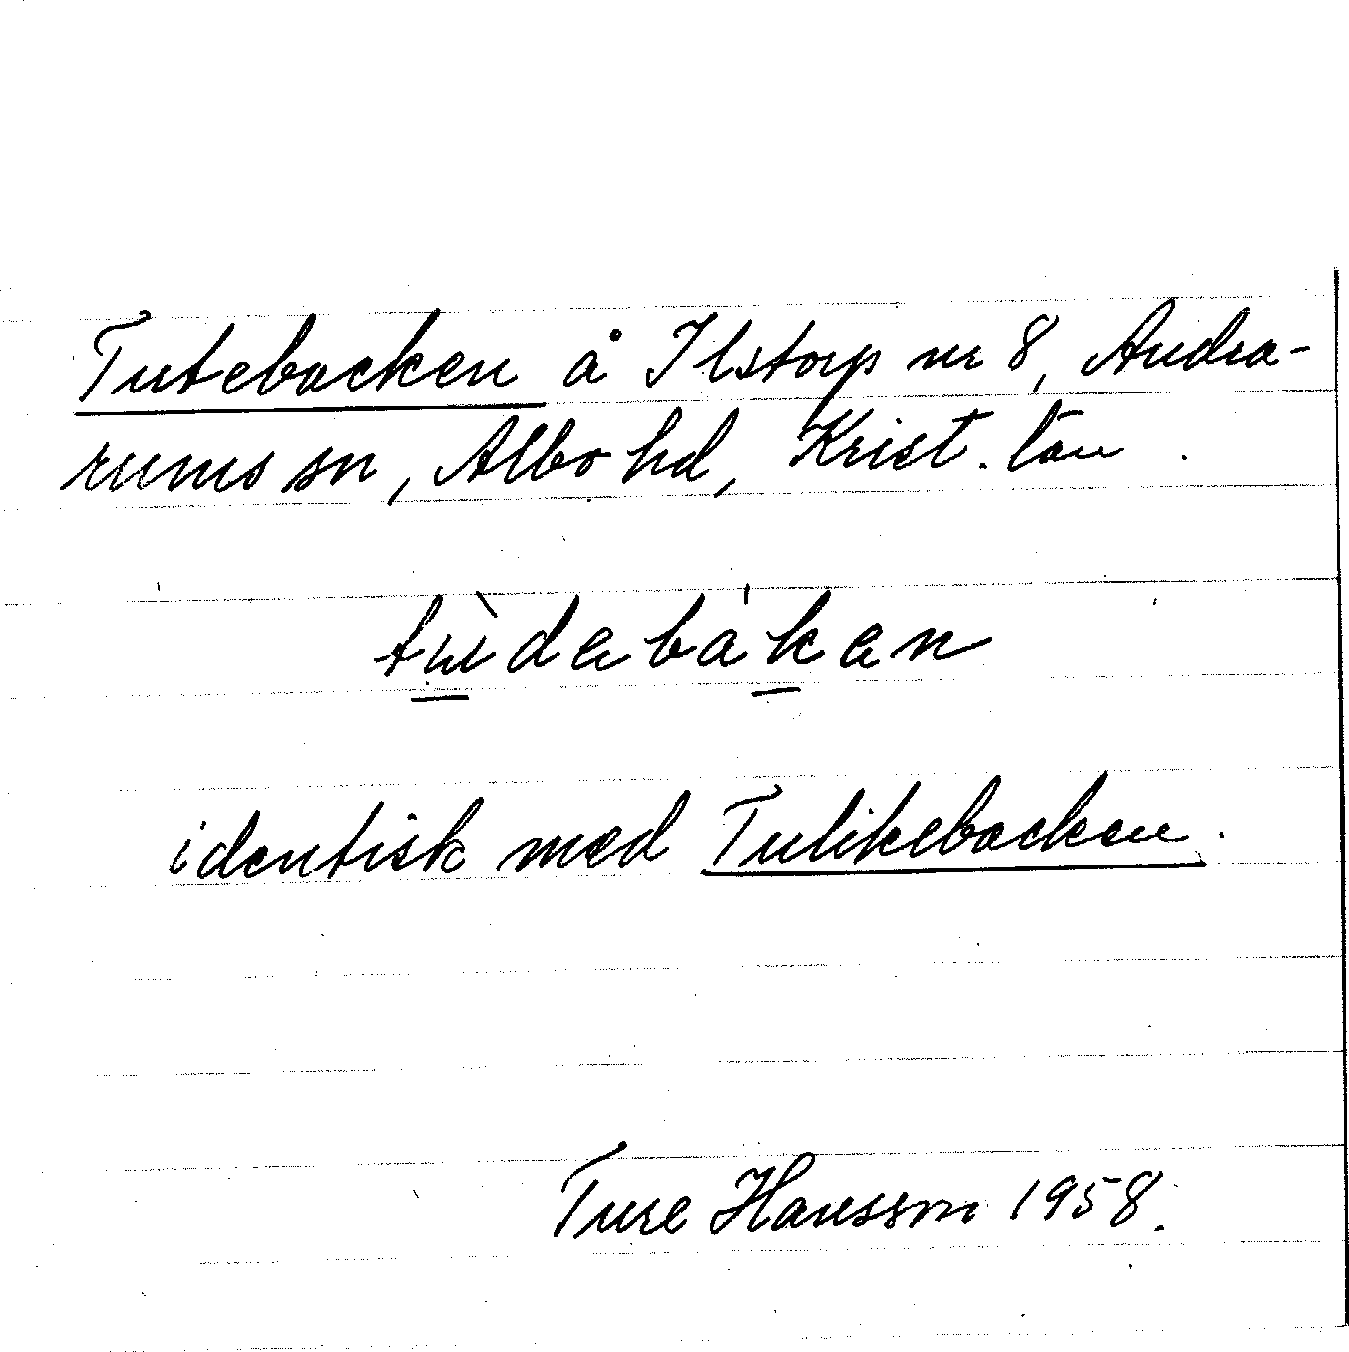 Tutebacken å Ilstorp nr 8, Andra-
rums sn, Albo hd, Krist. län.
tùdebáken
identisk med Tulikebacken.
Ture Hansson 1958.